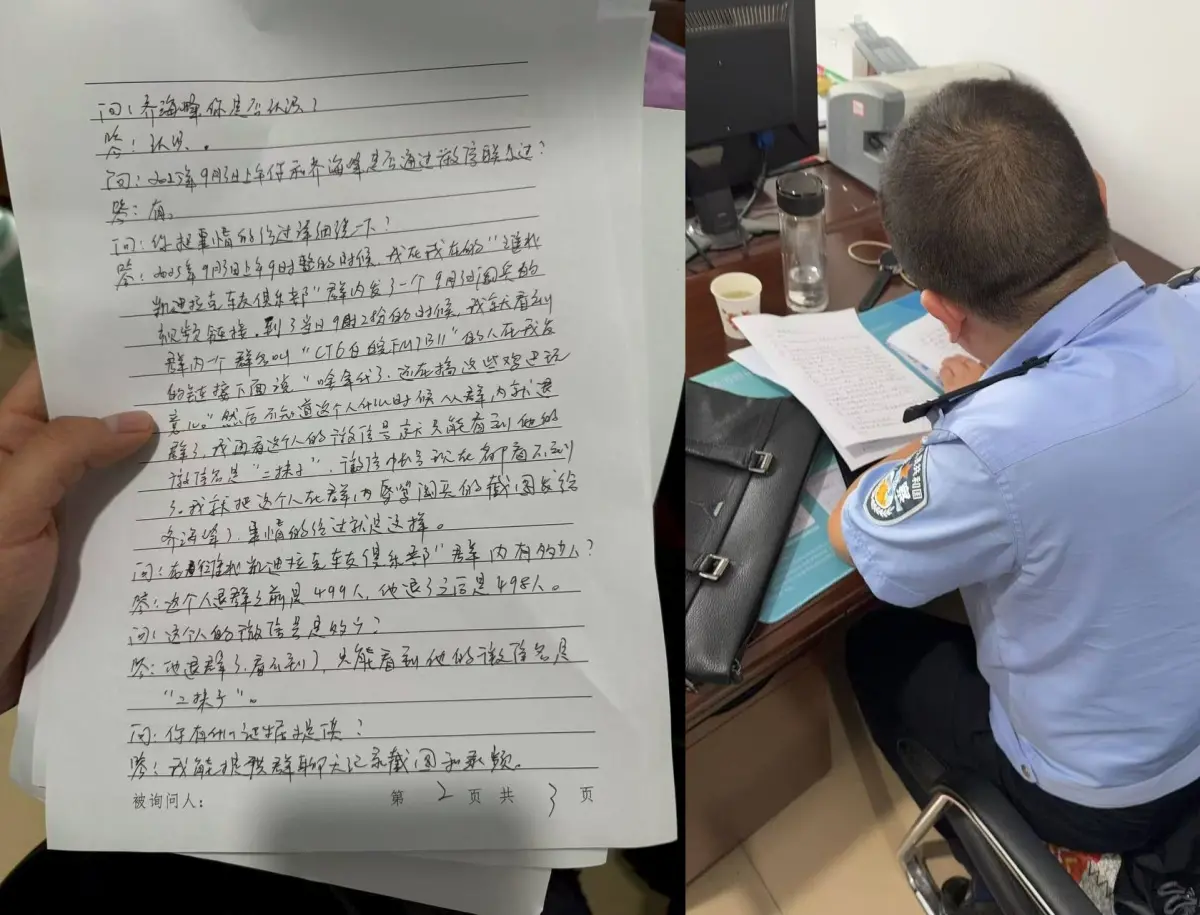 问：齐海峰你是否认识？
答：认识。
问：2025年9月3日上午你和齐海峰是否通过微信联系过？
答：有。
问：你把事情的经过详细说一下？
答：2025年9月3日上午9时整的时候，我在我在的“潍坊
凯迪拉克车友俱乐部”群内发了一个9月3日阅兵的
视频链接。到了当日9时2份的时候，我就看到
群内一个群名叫“CT6白 FM7311”的人在我发
的链接下面说“啥年代了，还在搞这些鸡巴玩
意儿。”然后不知道这个人什么时候从群内就退
群了，我再看这个人的微信号就只能看到他的
微信名是“二妹子”，微信帐号现在都看不到
了。我就把这个人在群内辱骂阅兵的截图发给
齐海峰了，事情的经过就是这样。
问：在潍坊凯迪拉克车友俱乐部”群内有多少人？
答：这个人退群之前是499人，他退了之后是498人。
问：这个人的微信号是多少？
答：他退群了，看不到了，只能看到他的微信名是
“二妹子”。
问：你有什么证据提供？
答：我能提供群聊天记录截图和录频。
被询问人： 第 2 页 共 3 页
共和国